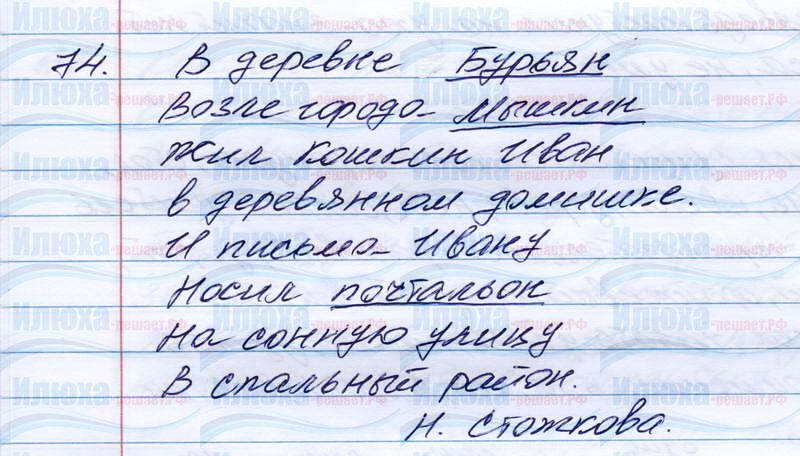 74. В деревне Бурьян
Возле города Мышкин
Жил Кошкин Иван
В деревянном домишке.
И письма Ивану
Носил почтальон
На сонную улицу
В спальный район.
Н. Стожкова.